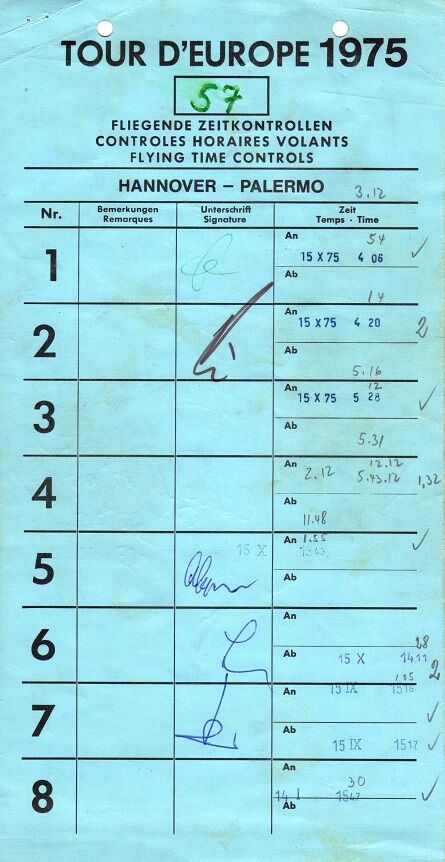 TOUR D'EUROPE 1975
57
FLIEGENDE ZEITKONTROLLEN
CONTROLES HORAIRES VOLANTS
FLYING TIME CONTROLS
HANNOVER – PALERMO 3.12
Nr. Bemerkungen Remarques Unterschrift Signature Zeit Temps · Time
1 An 54
15 X 75 4 06
Ab
14
2 An
15 X 75 4 20 2
Ab
5.16
3 An 12
15 X 75 5 28
Ab
5.31
4 An 2.12 12.12
5.43.12 1,32
Ab
11.48
5 An 1.55
15 X 1343
Ab
6 An
28
Ab 15 X 1411
2
1.05
7 An 15 IX 1516
Ab 15 IX 1517
8 An
30
14 I 1547
Ab